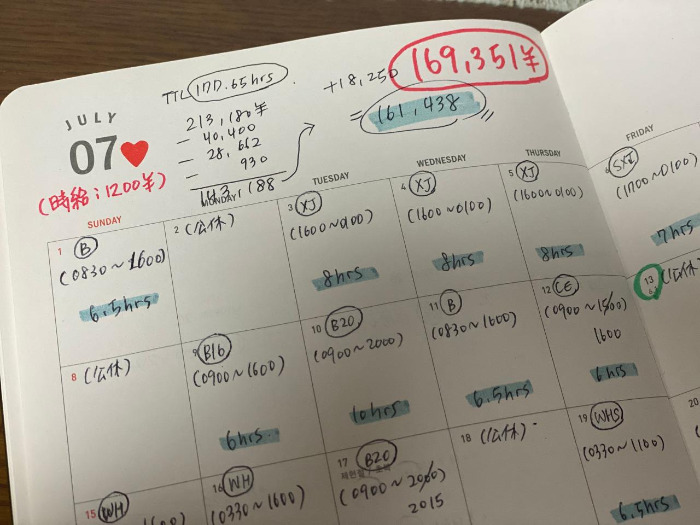 JULY
07
(時給:1200¥)
TTL 177.65hrs.
213,180¥
- 40,400
- 28,662
- 930
143,188
+18,250
= 161,438
169,351¥
SUNDAY
MONDAY
TUESDAY
WEDNESDAY
THURSDAY
FRIDAY
1 B
(0830~1600)
6.5hrs
2 (公休)
3 XJ
(1600~0100)
8hrs
4 XJ
(1600~0100)
8hrs
5 XJ
(1600~0100)
8hrs
6 SXJ
(1700~0100)
7hrs
8 (公休)
9 B16
(0900~1600)
6hrs
10 B20
(0900~2000)
10hrs
11 B
(0830~1600)
6.5hrs
12 CE
(0900~1500)
1600
6hrs
13
(公休)
15 WH
1600)
16 WH
(0330~1600)
17 B20
(0900~2000)
2015
18 (公休)
19 WHS
(0330~1100)
6.5hrs
20